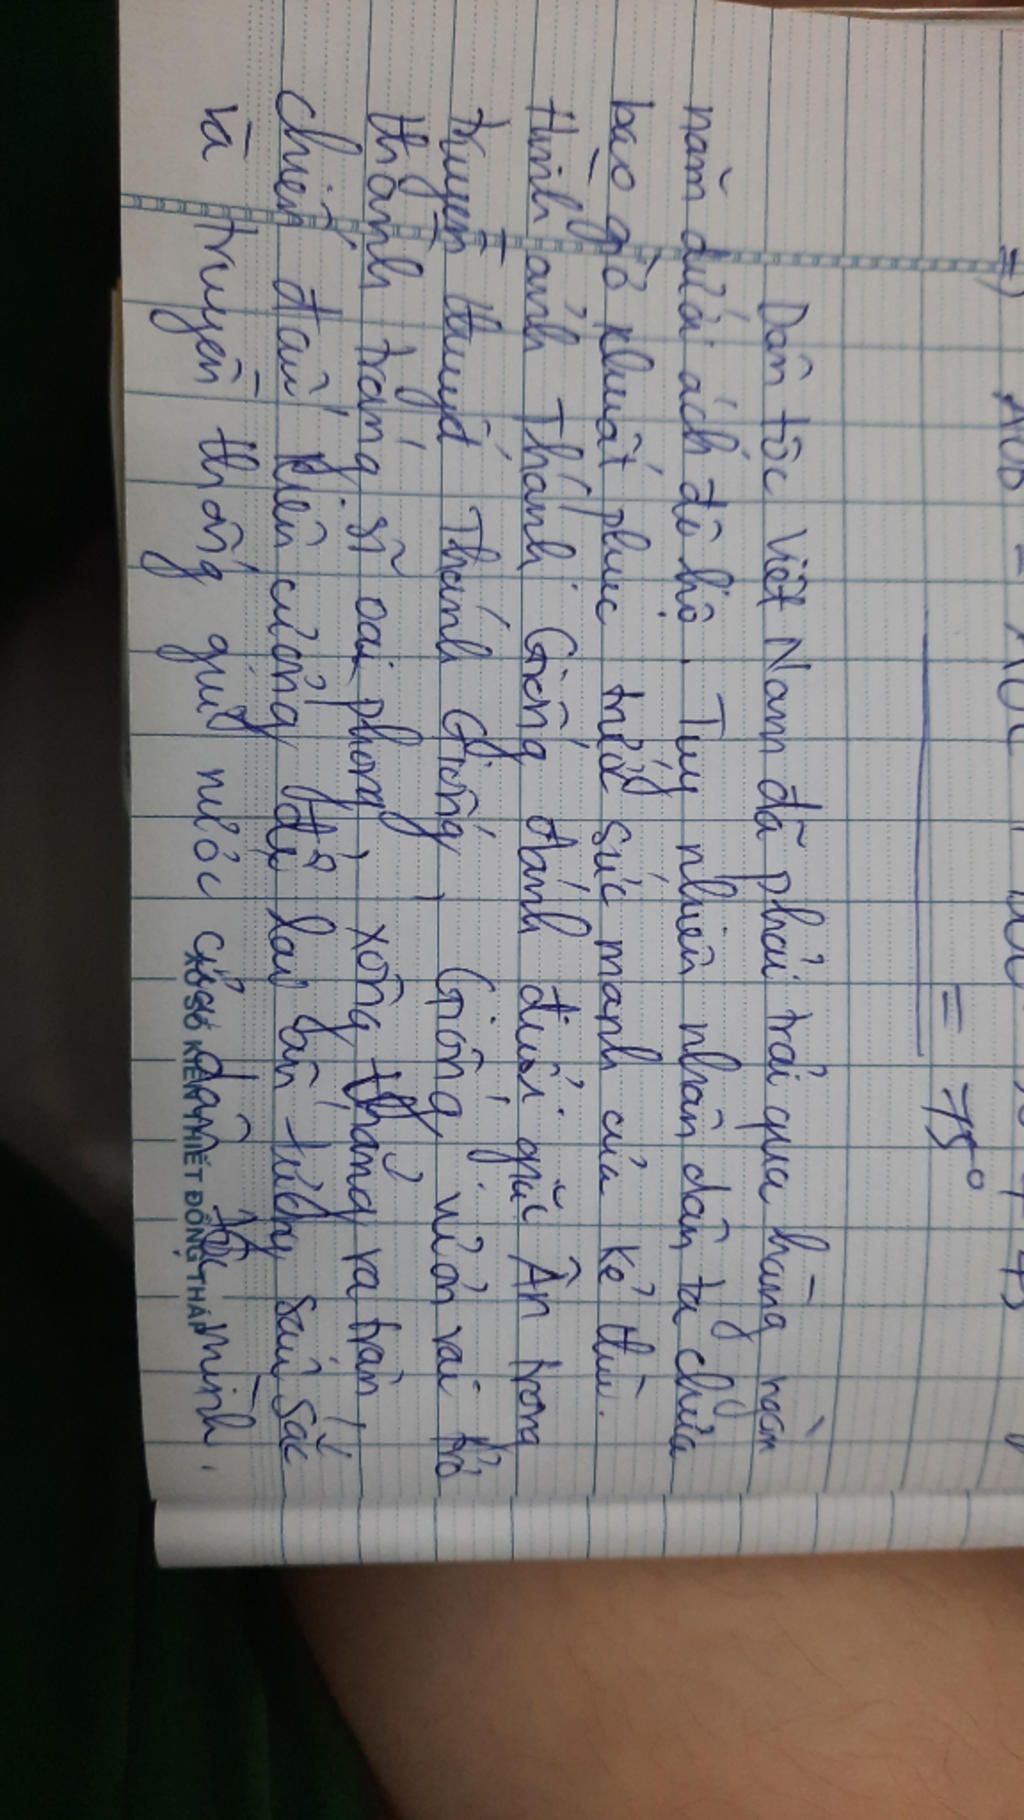 = 75°
Dân tộc Việt Nam đã phải trải qua hàng ngàn
năm dưới ách đô hộ. Tuy nhiên nhân dân ta chưa
bao giờ khuất phục trước sức mạnh của kẻ thù.
Hình ảnh Thánh Gióng đánh đuổi giặc Ân trong
truyền thuyết Thánh Gióng, Gióng vươn vai trở
thành tráng sĩ oai phong, xông thẳng ra trận,
chiến đấu kiên cường để lại ấn tượng sâu sắc
và truyền thống giữ nước của dân tộc mình.
XỔ SỐ KIẾN THIẾT ĐỒNG THÁP